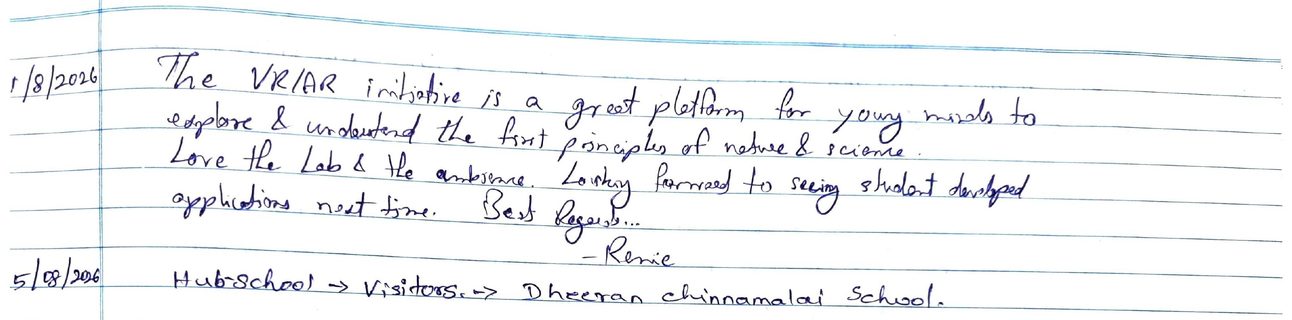 1/8/2026 The VR/AR initiative is a great platform for young minds to
explore & understand the first principles of nature & science.
Love the Lab & the ambience. Looking forward to seeing student developed
applications next time. Best Regards...
- Renie
5/08/2026 Hub-school → Visitors. → Dheeran chinnamalai School.